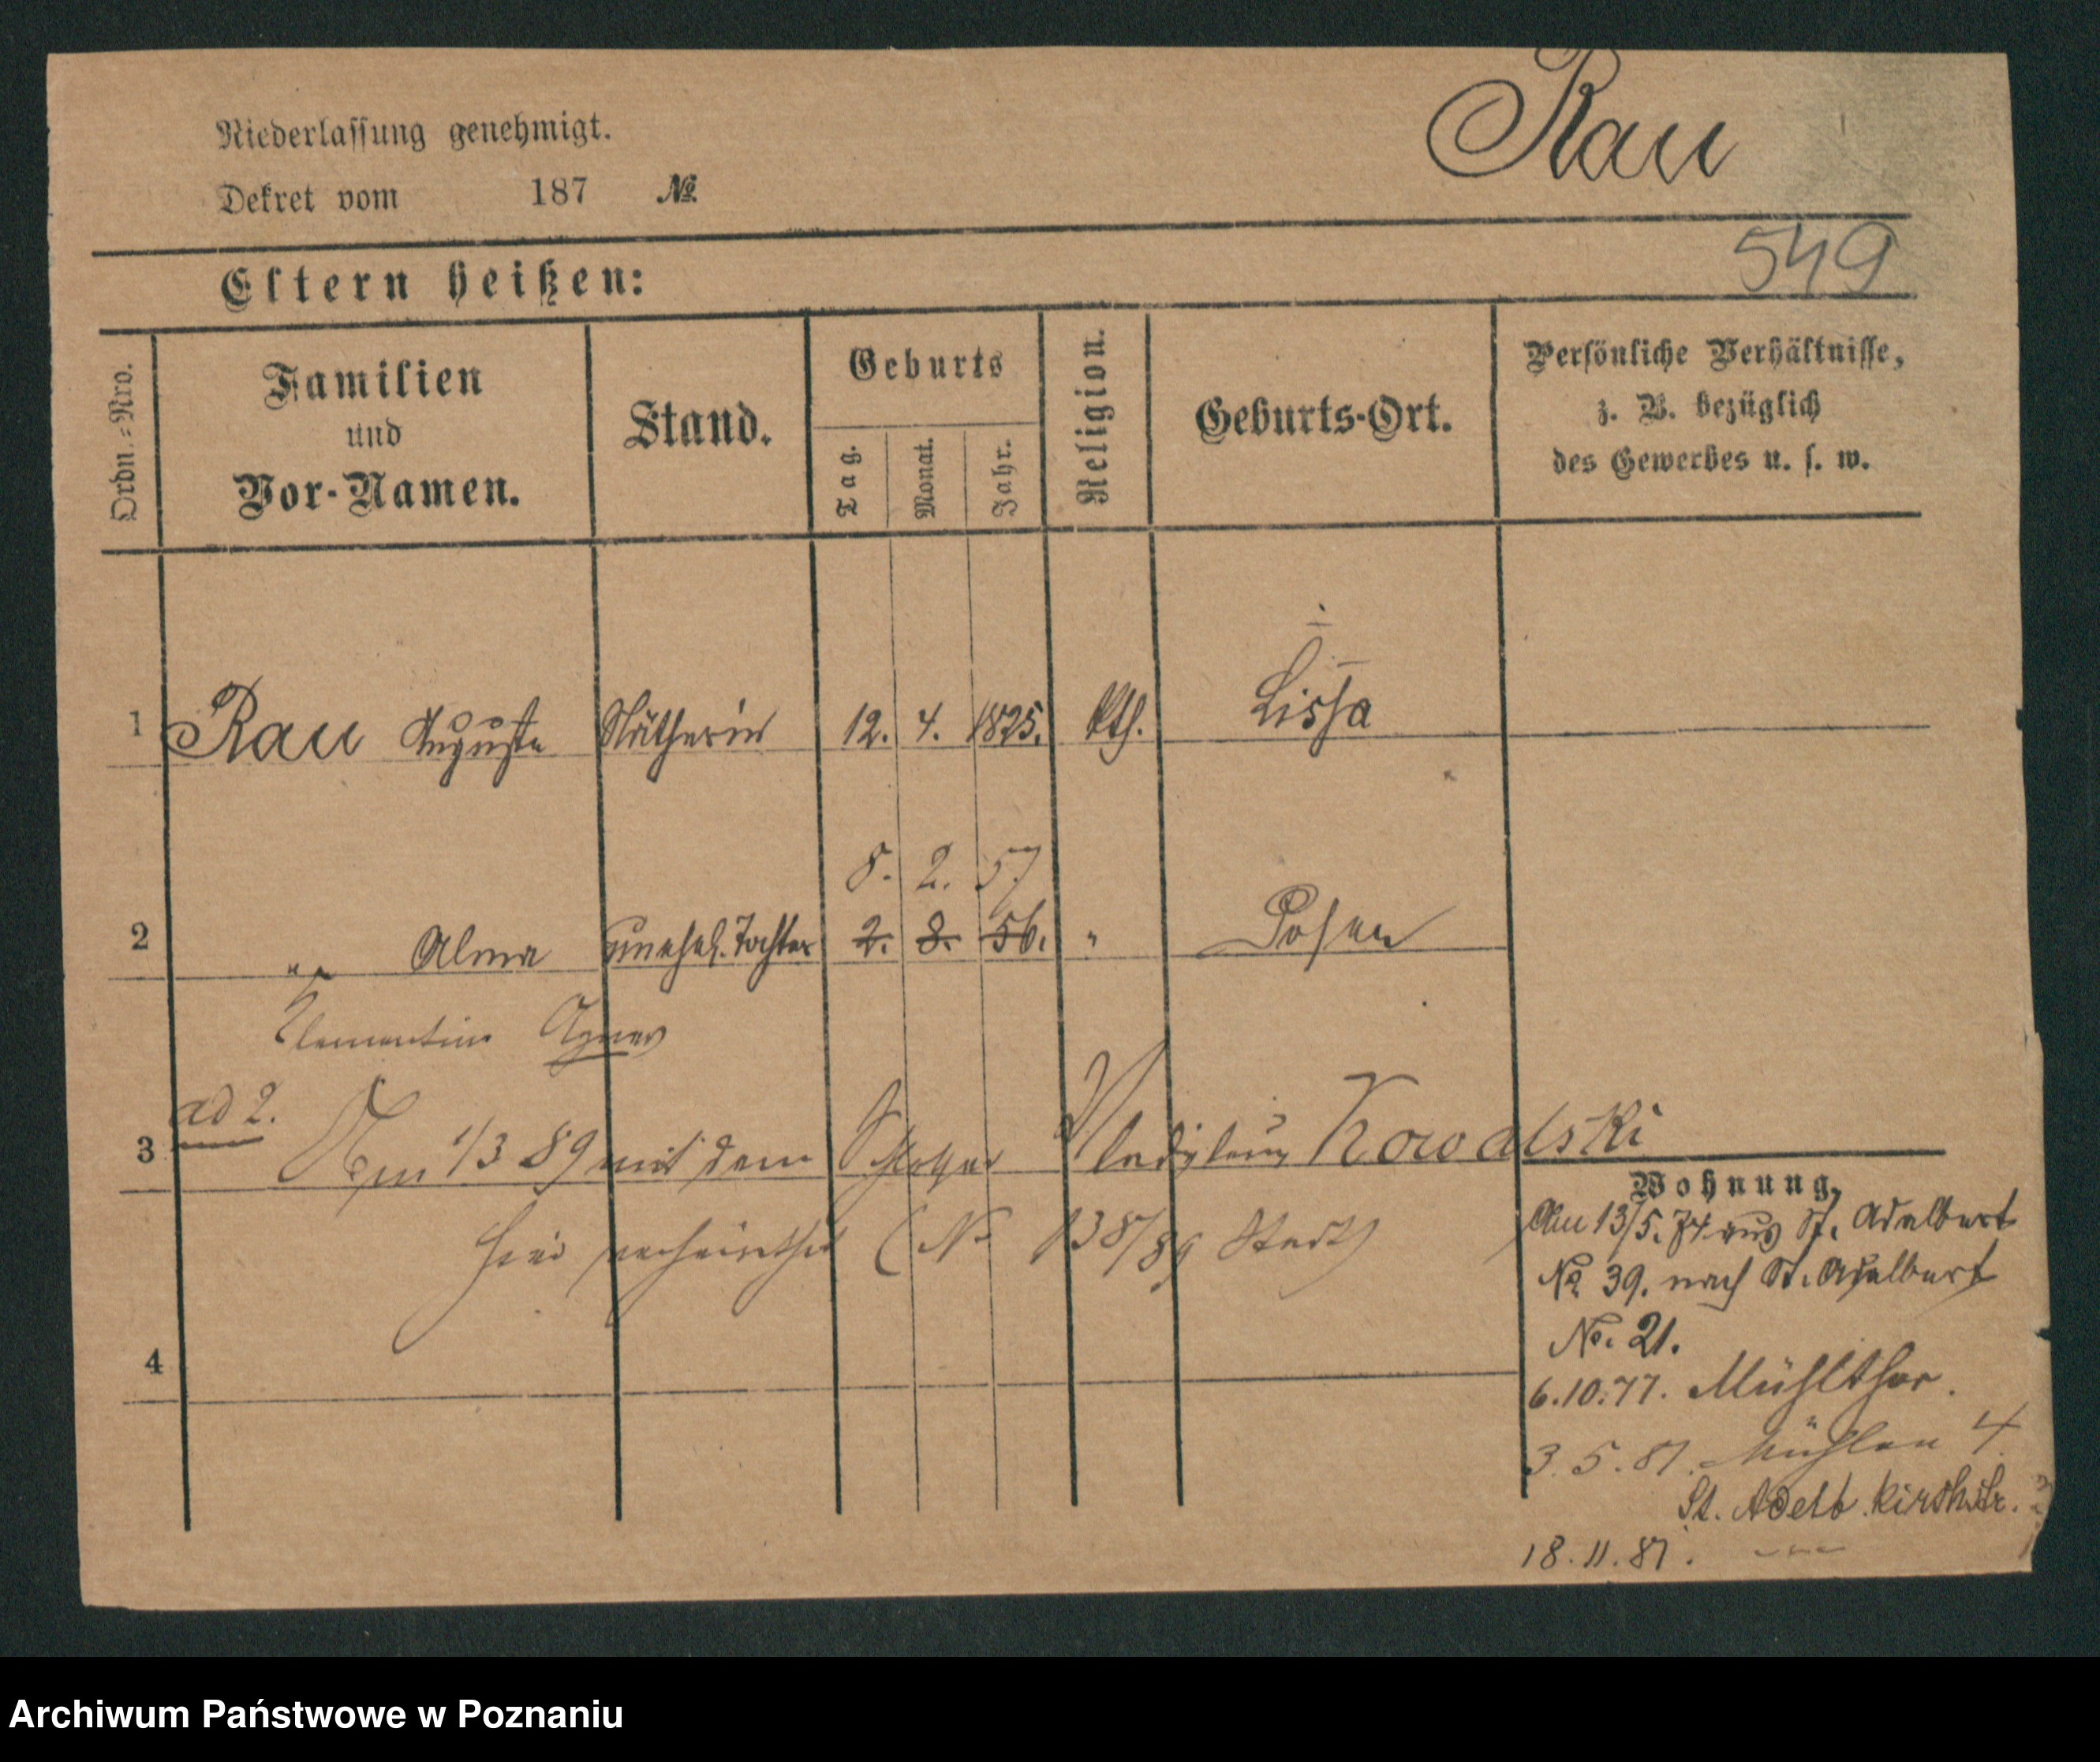 Niederlassung genehmigt.
Dekret vom 187 №
Rau
549
Eltern heißen:
Ordn.-Nro.
Familien
und
Vor-Namen.
Stand.
Geburts
Tag.
Monat.
Jahr.
Religion.
Geburts-Ort.
Persönliche Verhältnisse,
z. B. bezüglich
des Gewerbes u. s. w.
1 Rau Auguste Nätherin 12. 4. 1825. kth. Lissa
8. 2. 57
2 " Alma unehel. Tochter 2. 8. 56. " Posen
Clementine Agnes
ad 2.
3 Am 1/3 89 mit dem Kowalski
hier verheirathet (No 138/89 Stadt)
4
Wohnung.
Am 13/5. 74 aus St. Adalbert
No 39. nach St. Adalbert
No. 21.
6.10.77. Mühlthor.
3. 5. 81. Mühlen 4
St. Adelb. kirchstr.
18. 11. 81.
Archiwum Państwowe w Poznaniu